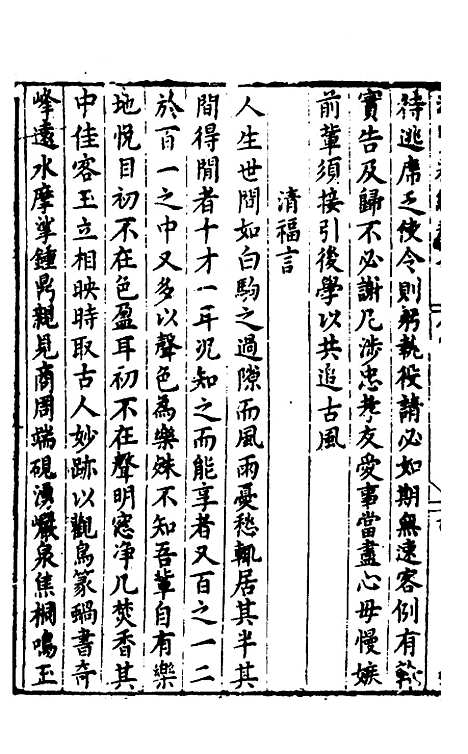 待逃席乏使令則躬執役請必如期無速客例有
實告及歸不必謝凡涉忠孝友愛事當盡心毋慢嫉
前輩須接引後學以共追古風
清福言
人生世間如白駒之過隙而風雨憂愁輒居其半其
間得閒者十才一耳況知之而能享者又百之一二
於百一之中又多以聲色為樂殊不知吾輩自有樂
地悅目初不在色盈耳初不在聲明窓净几焚香其
中佳客玉立相映時取古人妙跡以觀鳥篆蝸書奇
峰遠水摩挲鍾鼎親見商周端硯湧巖泉焦桐鳴玉